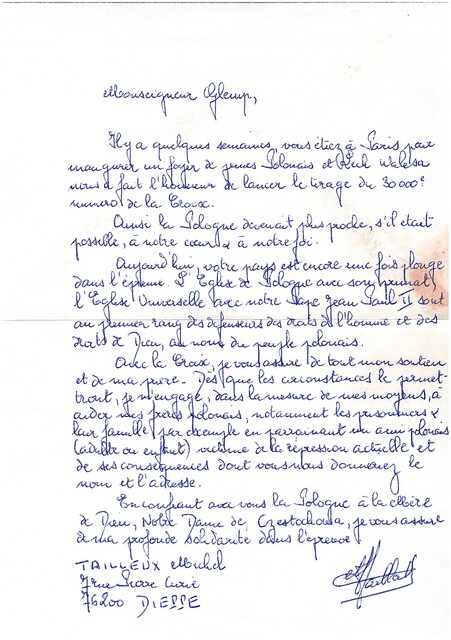 Monseigneur Glemp,
Il y a quelques semaines, vous étiez à Paris pour
inaugurer un foyer de jeunes Polonais et Lech Walesa
nous a fait l'honneur de lancer le tirage du 30 000e
numéro de la Croix.
Ainsi la Pologne devenait plus proche, s'il était
possible, à notre cœur & à notre foi.
Aujourd'hui, votre pays est encore une fois plongé
dans l'épreuve. L'Eglise de Pologne avec son primat,
l'Eglise Universelle avec notre Pape Jean Paul II sont
au premier rang des défenseurs des droits de l'homme et des
droits de Dieu, au nom du peuple polonais.
Avec la Croix, je vous assure de tout mon soutien
et de ma prière. Dès que les circonstances le permet-
tront, je m'engage, dans la mesure de mes moyens, à
aider mes frères polonais, notamment les prisonniers &
leur famille, par exemple en parrainant un ami polonais
(adulte ou enfant) victime de la répression actuelle et
de ses conséquences dont vous nous donnerez le
nom et l'adresse.
En confiant avec vous la Pologne à la Mère
de Dieu, Notre Dame de Czestochowa, je vous assure
de ma profonde solidarité dans l'épreuve
TAILLEUX Michel
7 rue Pierre Curie
76200 DIEPPE